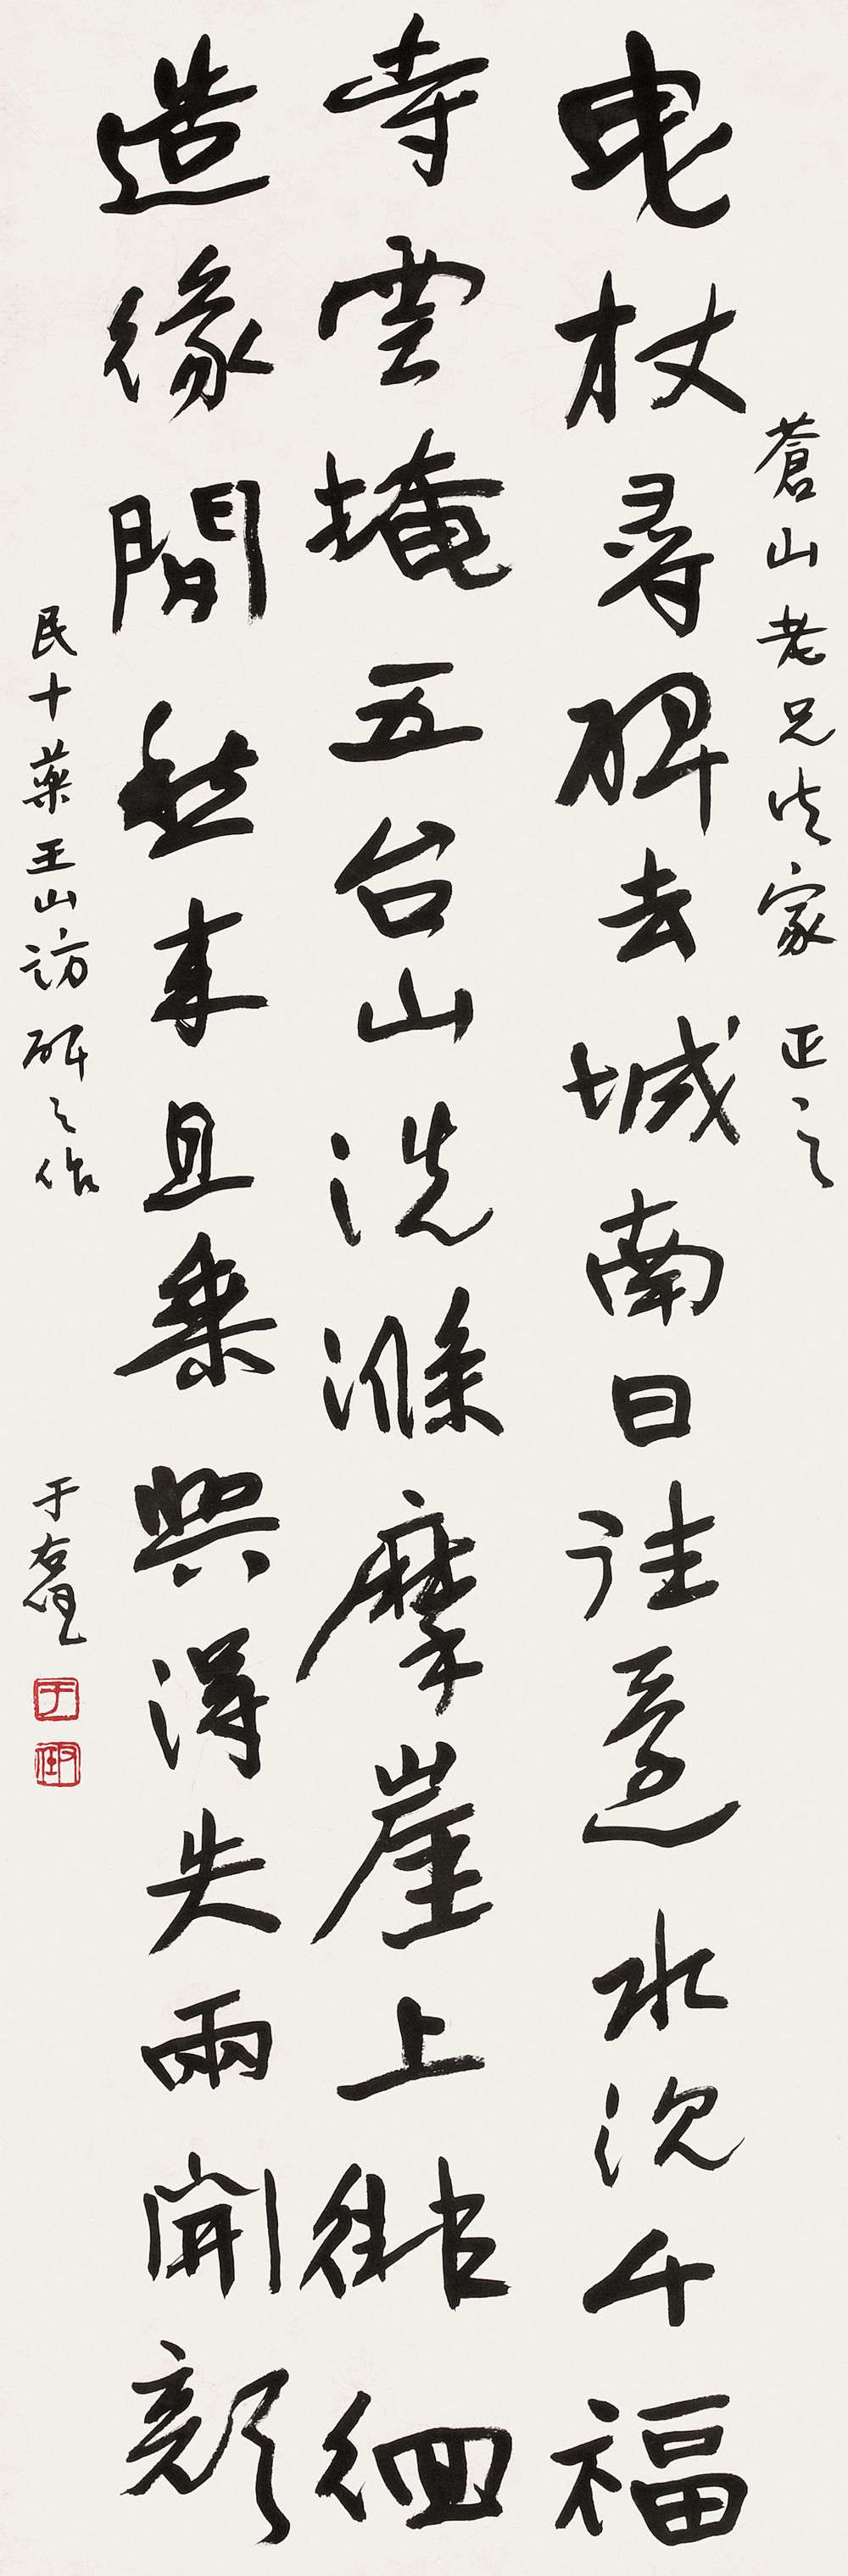 蒼山老兄法家 正之
曳杖尋碑去城南日往還水沉千福
寺雲掩五台山洗滌摩崖上徘徊
造像間愁來且乘興得失兩開顏
民十藥王山訪碑之作
于右任